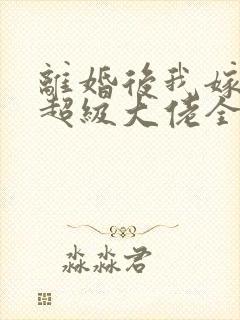 離婚後我嫁
超級大佬全
淼淼君